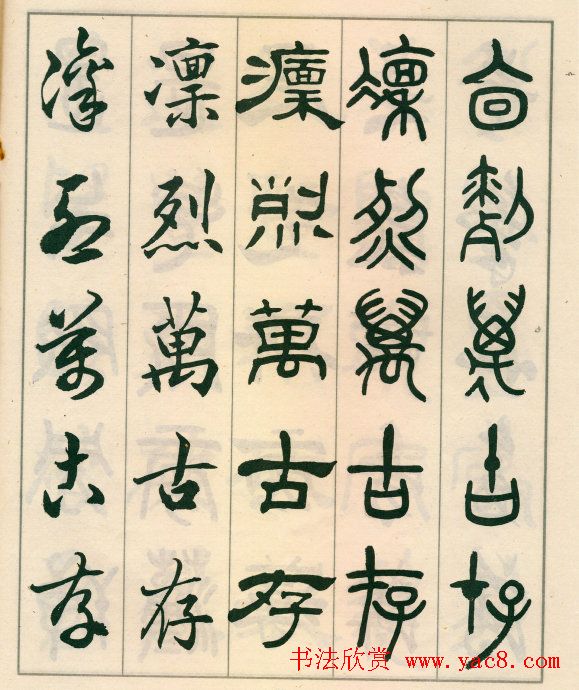 凜烈萬古存
凜烈萬古存
凜烈萬古存
凜烈萬古存
凜烈萬古存
书法欣赏 www.yac8.com